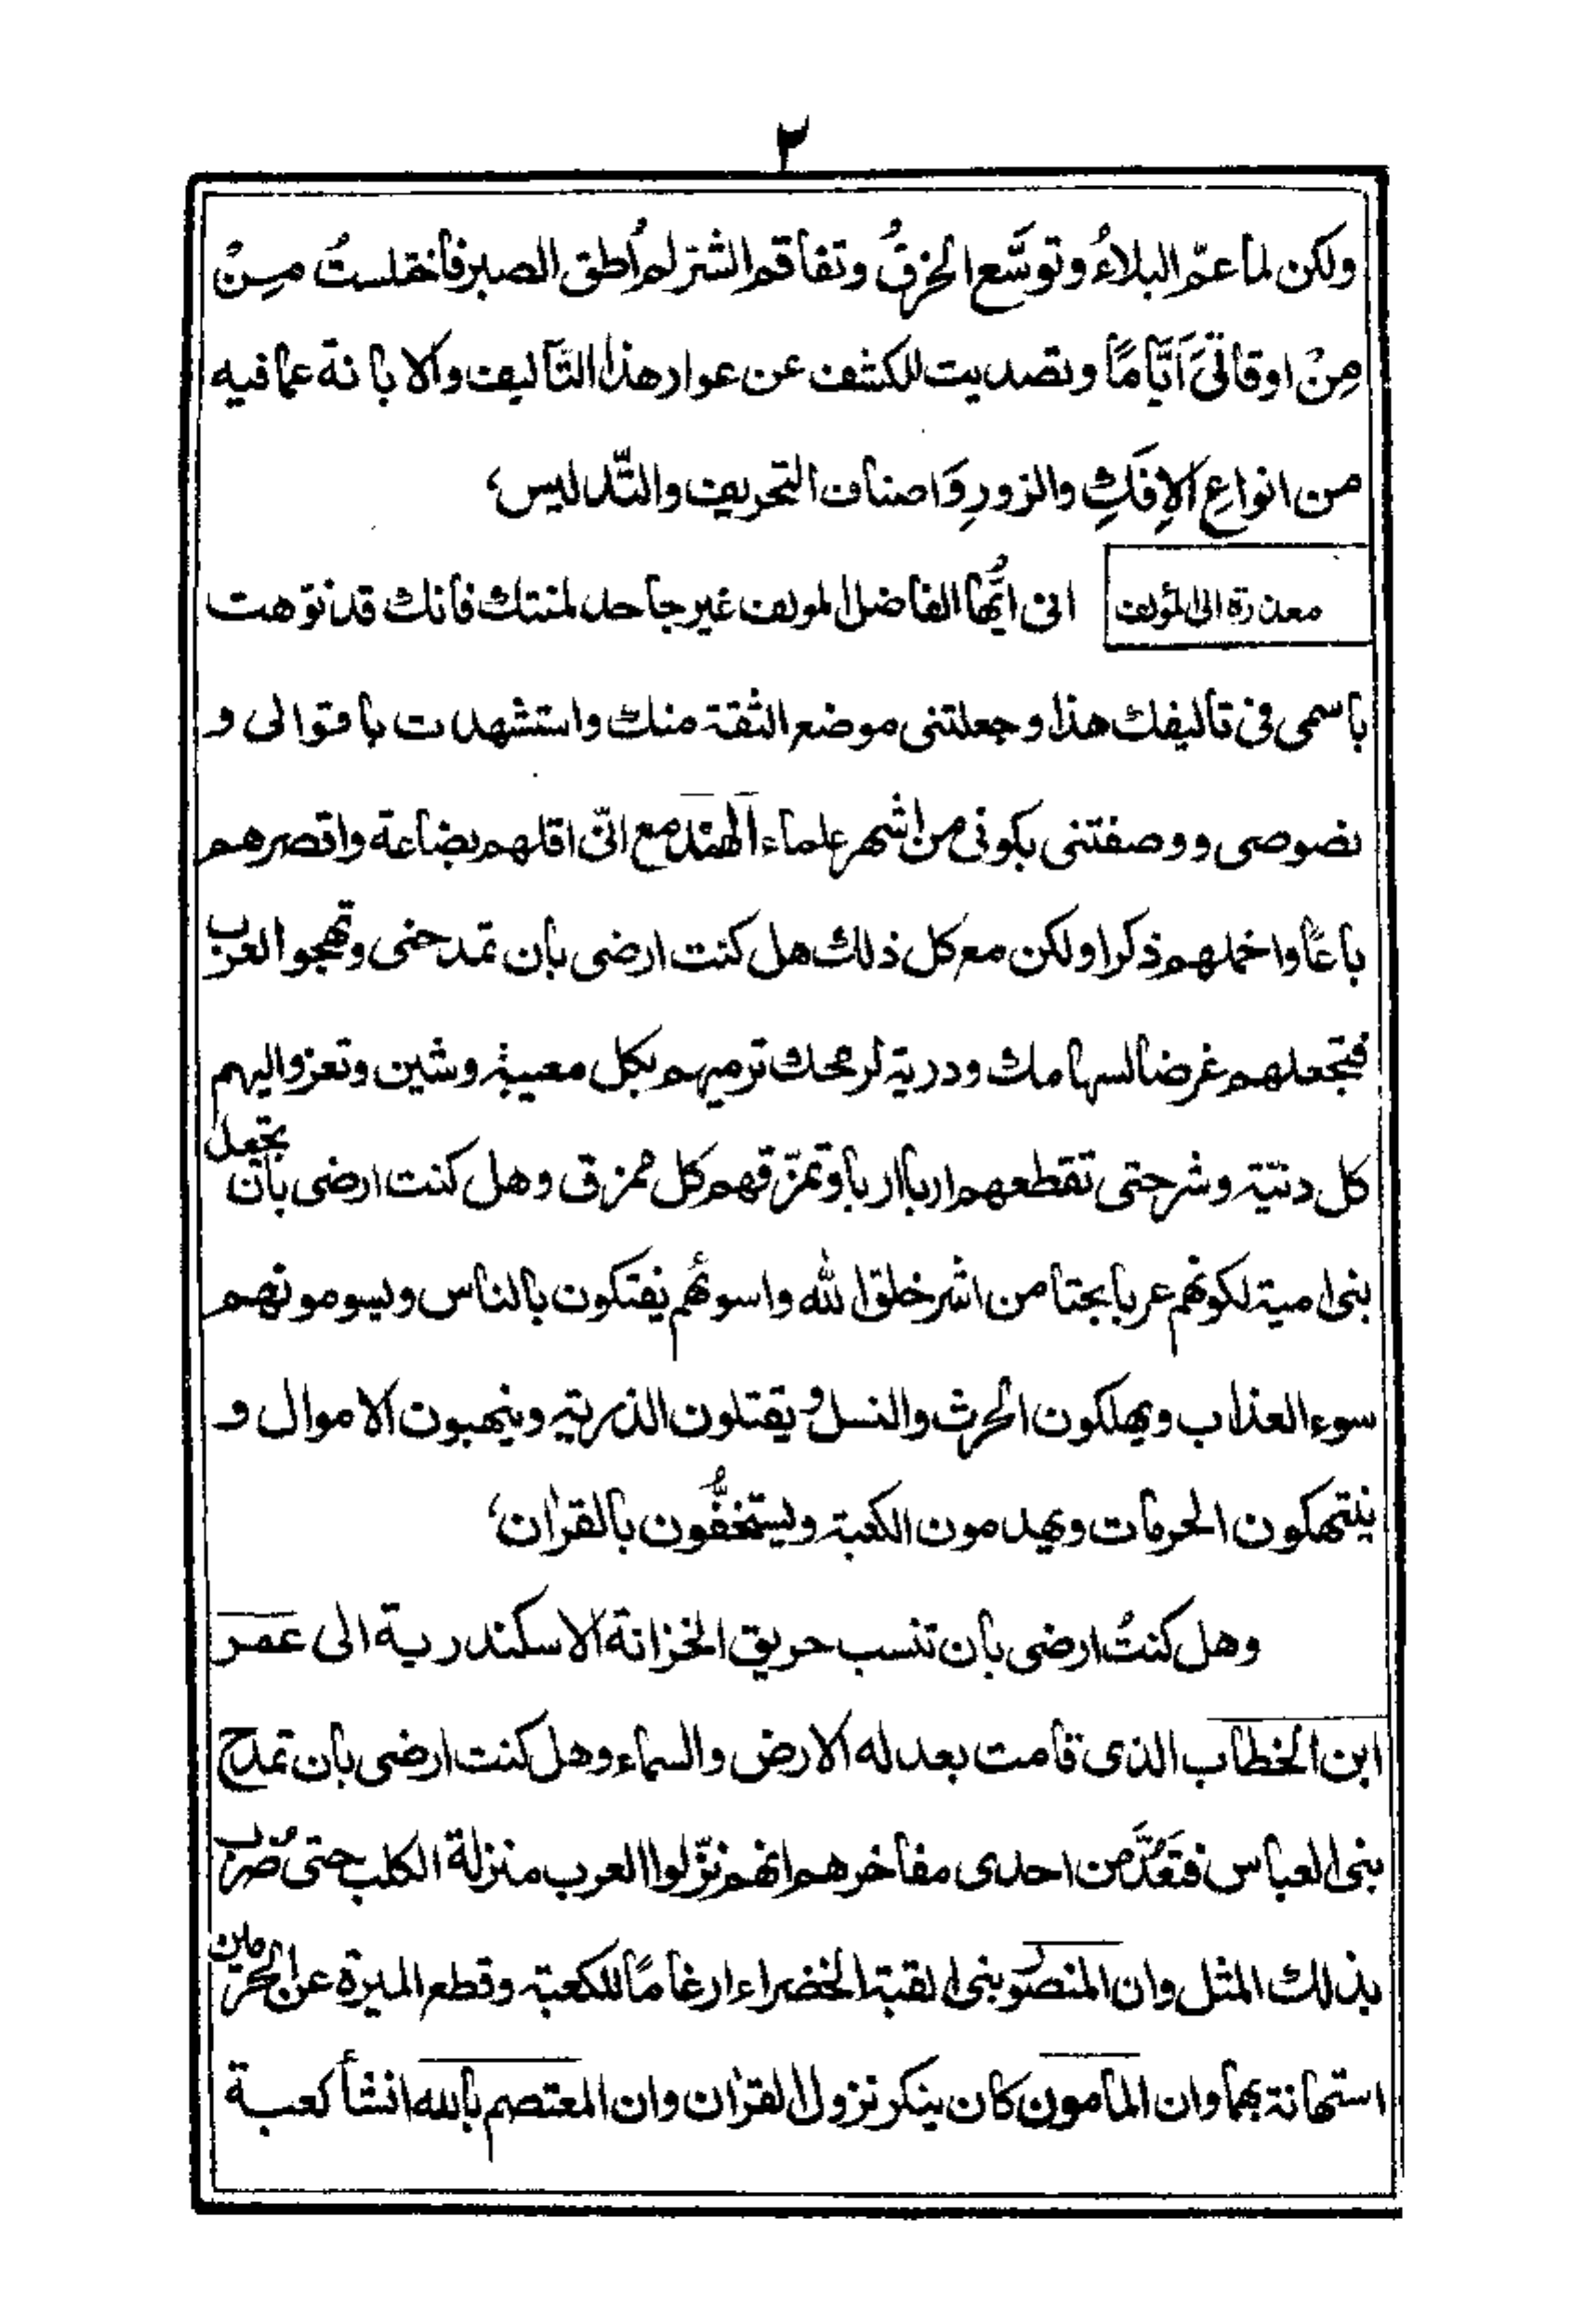 ٢
ولكن لما عمّ البلاءُ وتوسَّع الخرقُ وتفاقم الشرّ لم اُطق الصبر فاختلستُ مِنْ
مِنْ اوقاتىْ اَيَّامًا وتصديت للكشف عن عوار هذا التَّاليف والابانة عما فيه
من انواعِ الاِفكِ والزورِ وَاصناف التحريف والتَّدليس،
معذرة الى المؤلف
انى اَيُّها الفاضل المولف غير جاحد لمنتك فانك قد نوّهت
باسمى فى تاليفك هذا وجعلتنى موضع الثقة منك واستشهدت باقوالى و
نصوصى ووصفتنى بكونى من اشهر علماء الهند مع انّى اقلهم بضاعة واقصرهم
باعًا واخملهم ذكرا ولكن مع كل ذلك هل كنت ارضى بان تمدحنى وتهجو العرب
فتجعلهم غرضا لسهامك ودرية لرمحك ترميهم بكل معيبة وشين وتعزو اليهم
كل دنيّة وشر حتى تقطعهم اربا اربا وتمزّقهم كل ممزق وهل كنت ارضى بان تجعل
بنى امية لكونهم عربا بحتا من اشر خلق الله واسوئهم يفتكون بالناس ويسومونهم
سوء العذاب ويهلكون الحرث والنسل ويقتلون الذرية وينهبون الاموال و
ينتهكون الحرمات ويهدمون الكعبة ويستخفُّون بالقرٰان،
وهل كنتُ ارضى بان تنسب حريق الخزانة الاسكندرية الى عمر
ابن الخطاب الذى قامت بعدله الارض والسماء وهل كنت ارضى بان تمدح
بنى العباس فتَعُدَّ من احدى مفاخرهم انهم نزّلوا العرب منزلة الكلب حتى ضُرب
بذلك المثل وان المنصور بنى القبة الخضراء ارغامًا للكعبة وقطع الميرة عن الحرمين
استهانة بهما وان المأمون كان ينكر نزول القرٰان وان المعتصم بالله انشأ كعبة